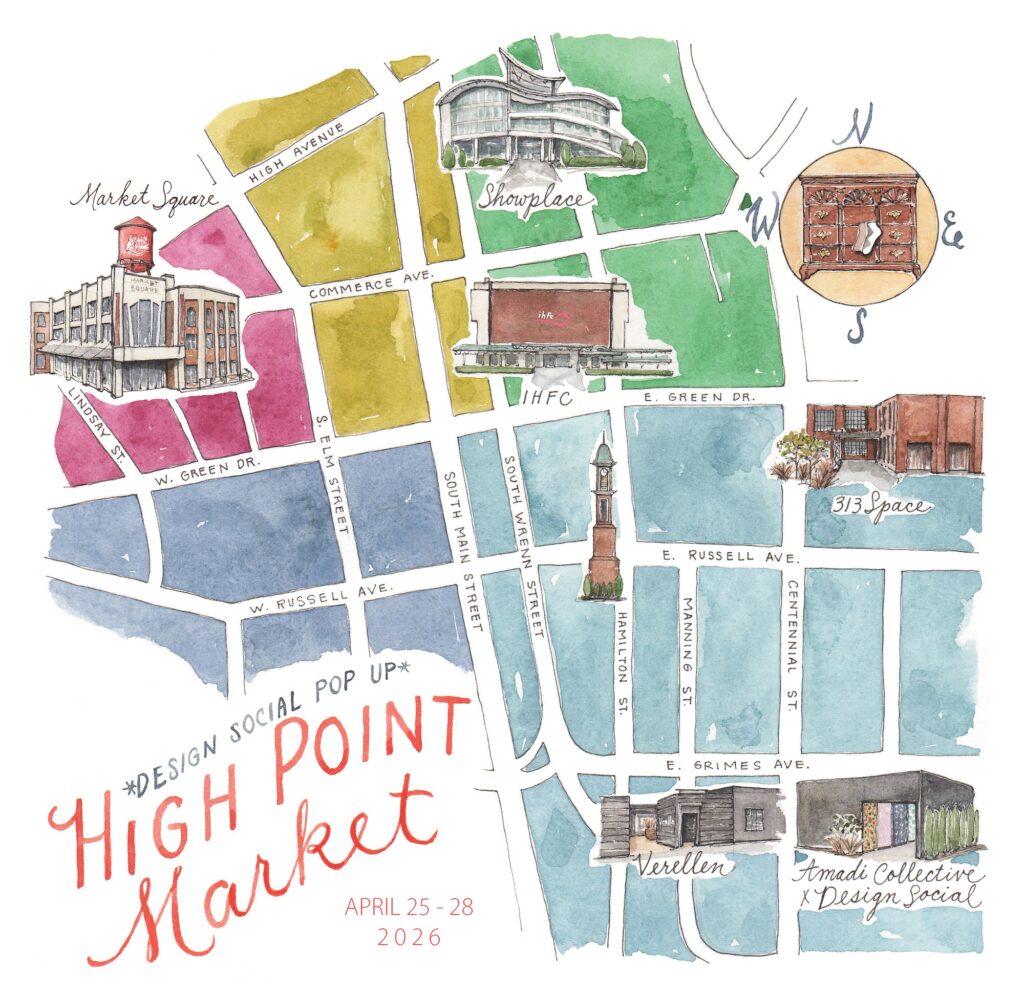 N
HIGH AVENUE
Market Square
Showplace
W
E
S
MARKET
SQUARE
COMMERCE AVE.
ihfc
IHFC
E. GREEN DR.
LINDSAY ST.
W. GREEN DR.
S. ELM STREET
SOUTH MAIN STREET
SOUTH WRENN STREET
313 Space
E. RUSSELL AVE.
W. RUSSELL AVE.
HAMILTON ST.
MANNING ST.
CENTENNIAL ST.
*DESIGN SOCIAL POP UP*
HIGH POINT
Market
APRIL 25 - 28
2026
E. GRIMES AVE.
Verellen
Verellen
Amadi Collective
x Design Social